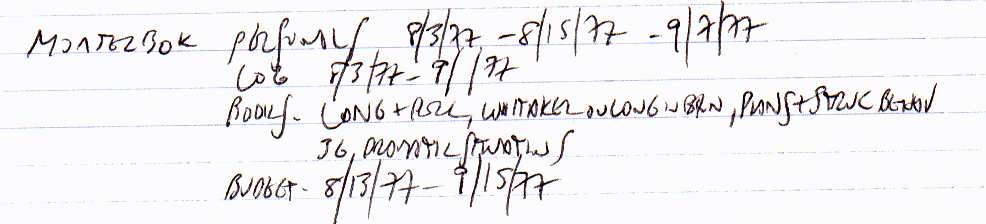 PERSONALS 8/3/77 - 8/15/77 - 9/7/77
LOG 8/3/77 - 9/1/77
BOOKS - CONG + PSY, WHITAKER ON CONG IN BRN, PLANS + STRUC BEHAV
36, DRAMATIC SITUATIONS
BUDGET - 8/13/77 - 9/15/77